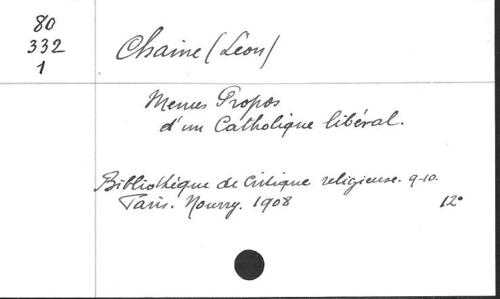 80
332
1
Chaine (Léon)
Menus Propos
d'un Catholique libéral.
Bibliothèque de Critique religieuse. 9-10.
Paris. Nourry. 1908 12°